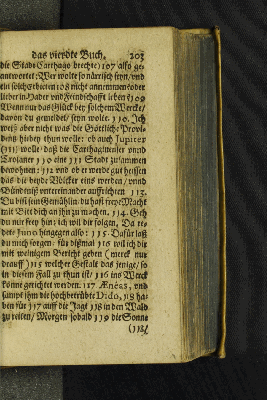 das vierdte Buch. 203
die Stadt Carthago brechte) 107 also ge-
antwortet: Wer wolte so närrisch seyn / und
ein solch erbieten 108 nicht annemmen oder
lieber in Hader und Feindschafft leben? 109
Wenn nur das Glück bey solchem Wercke /
davon du gemeldet / seyn wolte. 110. Ich
weiß aber nicht was die Göttliche Provi-
dentz hiebey thun wolle: ob auch Jupiter
(111) wolle daß die Carthaginenser und
Trojaner 110 eine 111 Stadt zusammen
bewohnen: 112 und ob er werde gut heissen
das die beyde Völcker eins werden / und
Bündeniß untereinander auffrichten 113.
Du bist sein Gemählin: du hast freye Macht
mit Bitt dich an ihn zu machen. 114. Geh
du nur frey hin: ich wil dir folgen. Da re-
dete Juno hingegen also: 115. Dafür laß
du mich sorgen: für dißmal 116 wil ich dir
mit wenigem Bericht geben (merck nur
drauff) 115 welcher Gestalt das jenige / so
in diesem Fall zu thun ist / 116 ins Werck
könne gerichtet werden. 117 Æneas, und
sampt ihm die hochbetrübte Dido, 118 ha-
ben für 117 auff die Jagt 118 in den Wald
zu reiten / Morgen sobald 119 die Sonne
(118)